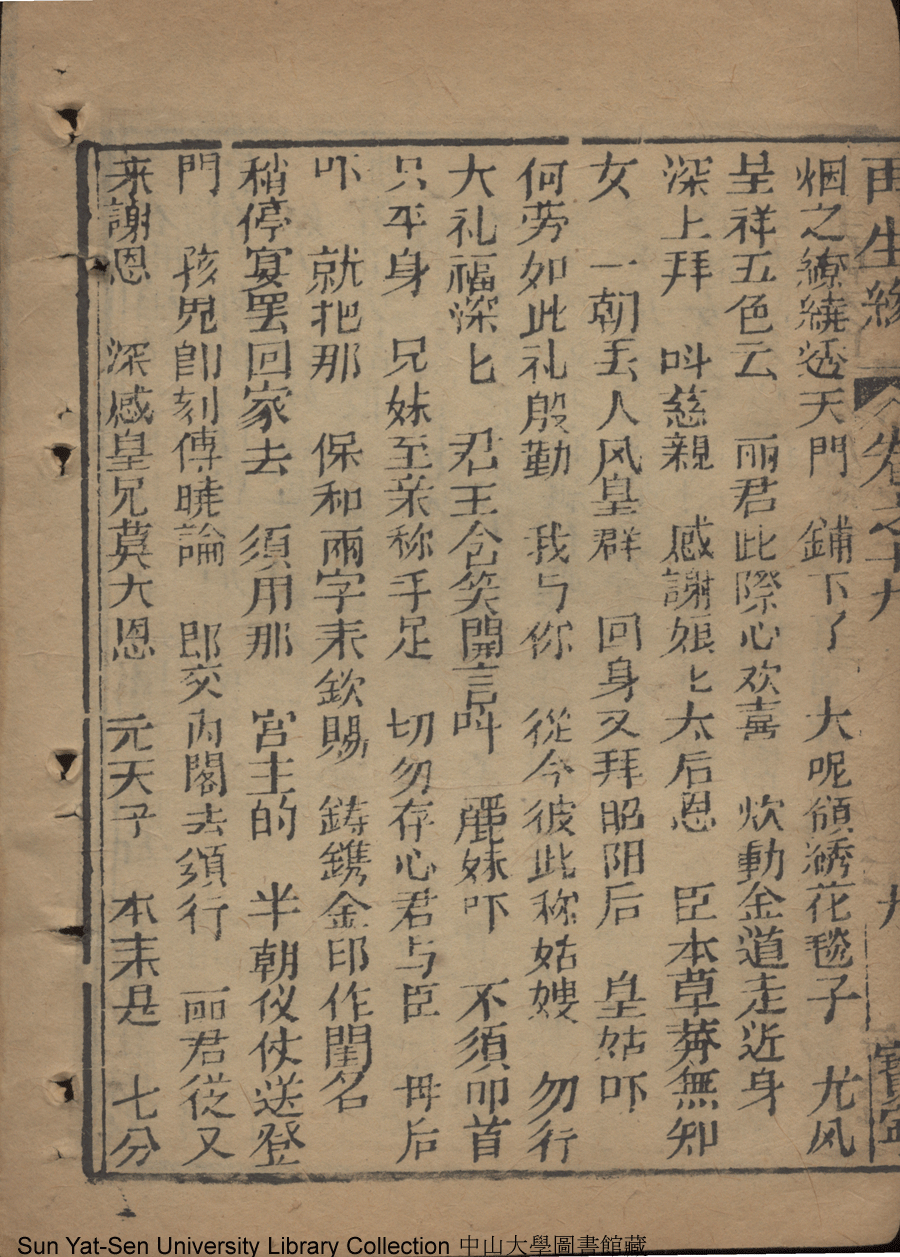 再生緣 卷之十九 九
烟之繚繞透天門 鋪下了 大呢頒綉花毯子 尤风
呈祥五色云 丽君此際心欢喜 炊動金道走近身
深上拜 呌慈親 感謝娘匕太后恩 臣本草莽無知
女 一朝丢人风皇群 回身又拜昭阳后 皇姑吓
何劳如此礼殷勤 我与你 從今彼此称姑嫂 勿行
大礼福深匕 君王含笑開言呌 麗妹吓 不須叩首
只平身 兄妹至亲称手足 切勿存心君与臣 毋后
吓 就把那 保和兩字耒欽賜 鋳鐫金印作閨名
稍停宴罢回家去 須用那 宫主的 半朝仪仗送登
門 孩児卽刻傳曉論 郎交內閣去須行 丽君從又
来謝恩 深感皇兄莫大恩 元天子 本耒是 七分
Sun Yat-Sen University Library Collection 中山大學圖書館藏